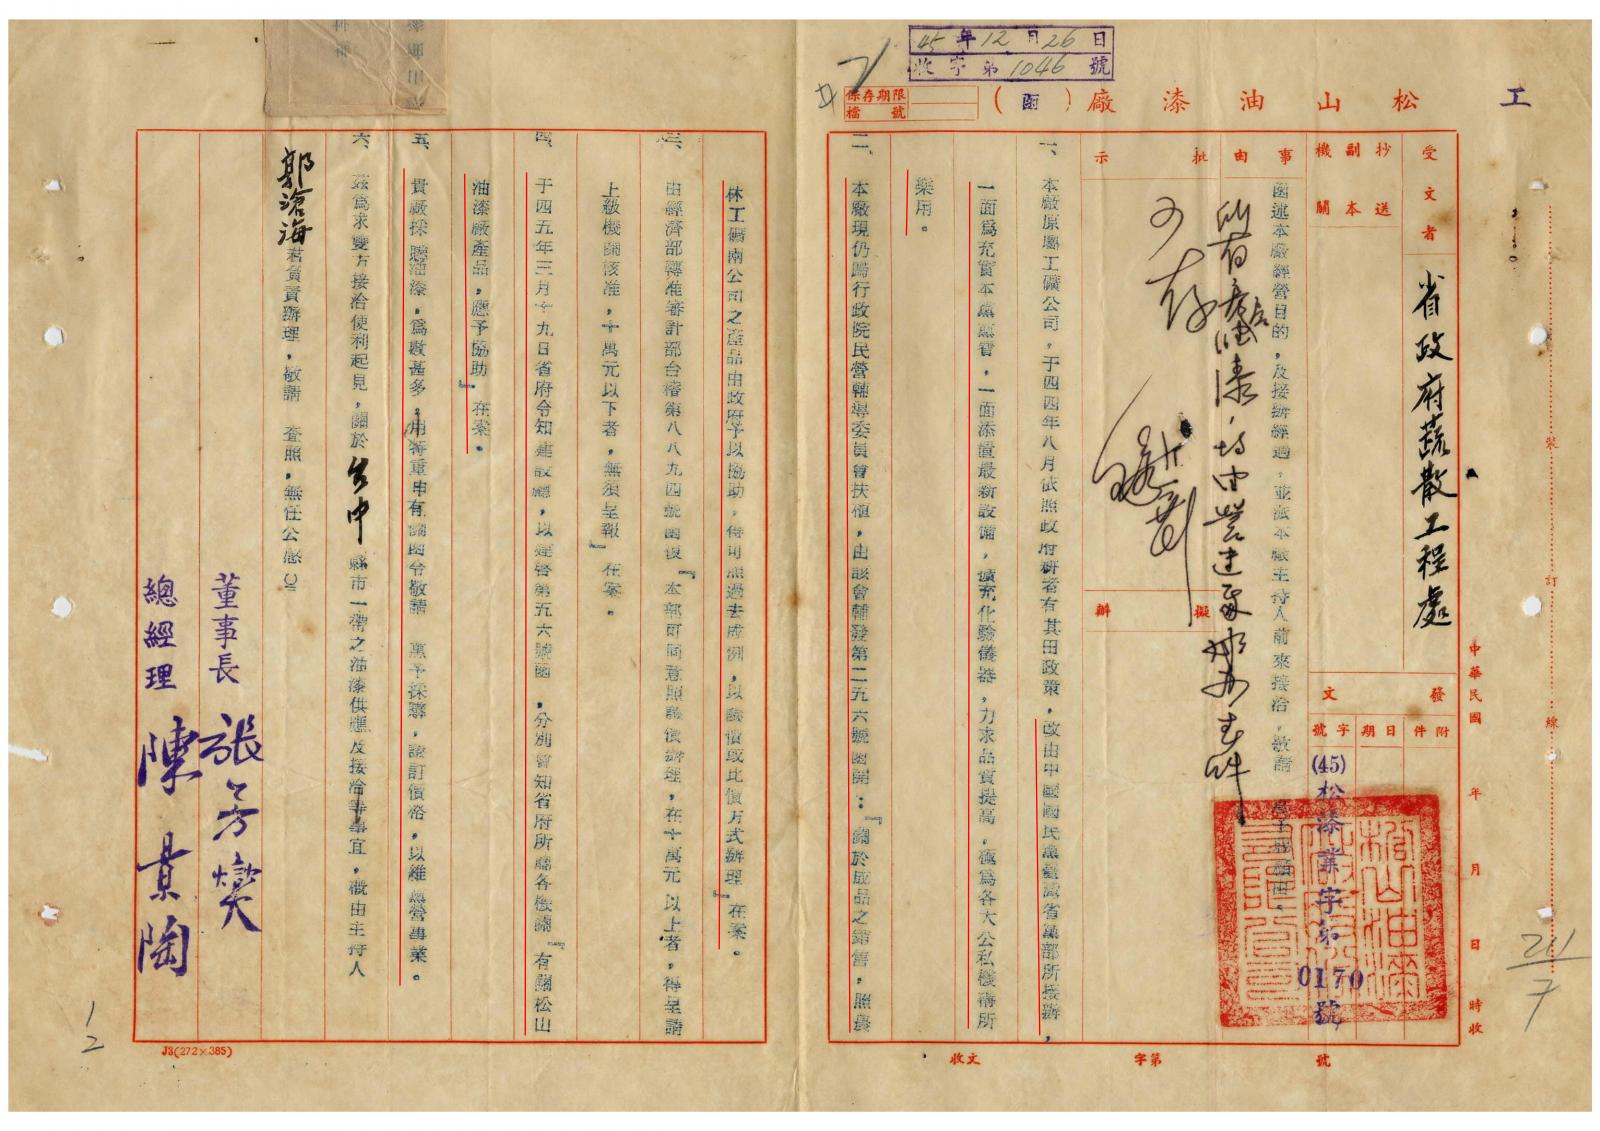 工
松山油漆廠(函)
45年12月26日
收字第1046號
保存期限
檔號
受文者
省政府蔬散工程處
抄送
副本
機關
發文
附件
日期
字號
(45)松漆業字第0170號
中華民國 年 月 日 時收
裝 訂 線
事由
函述本廠經營目的,及接辦經過,並派本廠主持人前來接洽,敬請
批示
擬辦
可存
一、本廠原屬工礦公司,于四四年八月依照政府耕者有其田政策,改由中國國民黨臺灣省黨部所接辦,
一面為充實本黨黨資,一面添置最新設備,擴充化驗儀器,力求品質提高,極為各大公私機構所
樂用。
二、本廠現仍歸行政院民營輔導委員會扶植,由該會輔發第二五六號函開:『關於成品之銷售,照農
林工礦兩公司之產品由政府予以協助,得可照過去成例,以議價或比價方式辦理』在案。
三、由經濟部轉准審計部台稽第八八九四號函復『本部可同意照議價辦理,在十萬元以上者,得呈請
上級機關核准,十萬元以下者,無須呈報』在案。
四、于四五年三月十九日省府令知建設廳,以建啓第五六號函,分別會知省府所屬各機關『有關松山
油漆廠產品,應予協助』在案。
五、貴廠採購油漆,為數甚多,用特重申有關函令敬請 惠予採購,議訂價格,以維黨營事業。
六、茲為求雙方接洽便利起見,關於台中縣市一帶之油漆供應及接洽等事宜,概由主持人
郭滄海君負責辦理,敬請 查照,無任公感。
董事長 張芳燮
總經理 陳景陶
1/2
211/7
J3(272×385)
收文 字第 號